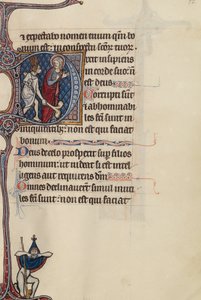 et expectabo nomen tuum qm̄ bo
num est: in conspectu scōꝝ tuoꝝ.
Dixit insipiens
in corde suo: nō
est deus.
Corrupti sūt
⁊ abhominabi
les fc̄i sunt in
iniquitatib;: non est qui faciat
bonum.
Deus de celo prospexit sup filios
hominum: ut uideat si est intel
ligens aut requirens dm̄.
Omnes declinauert simul inuti
les fc̄i sunt: non est qui faciat